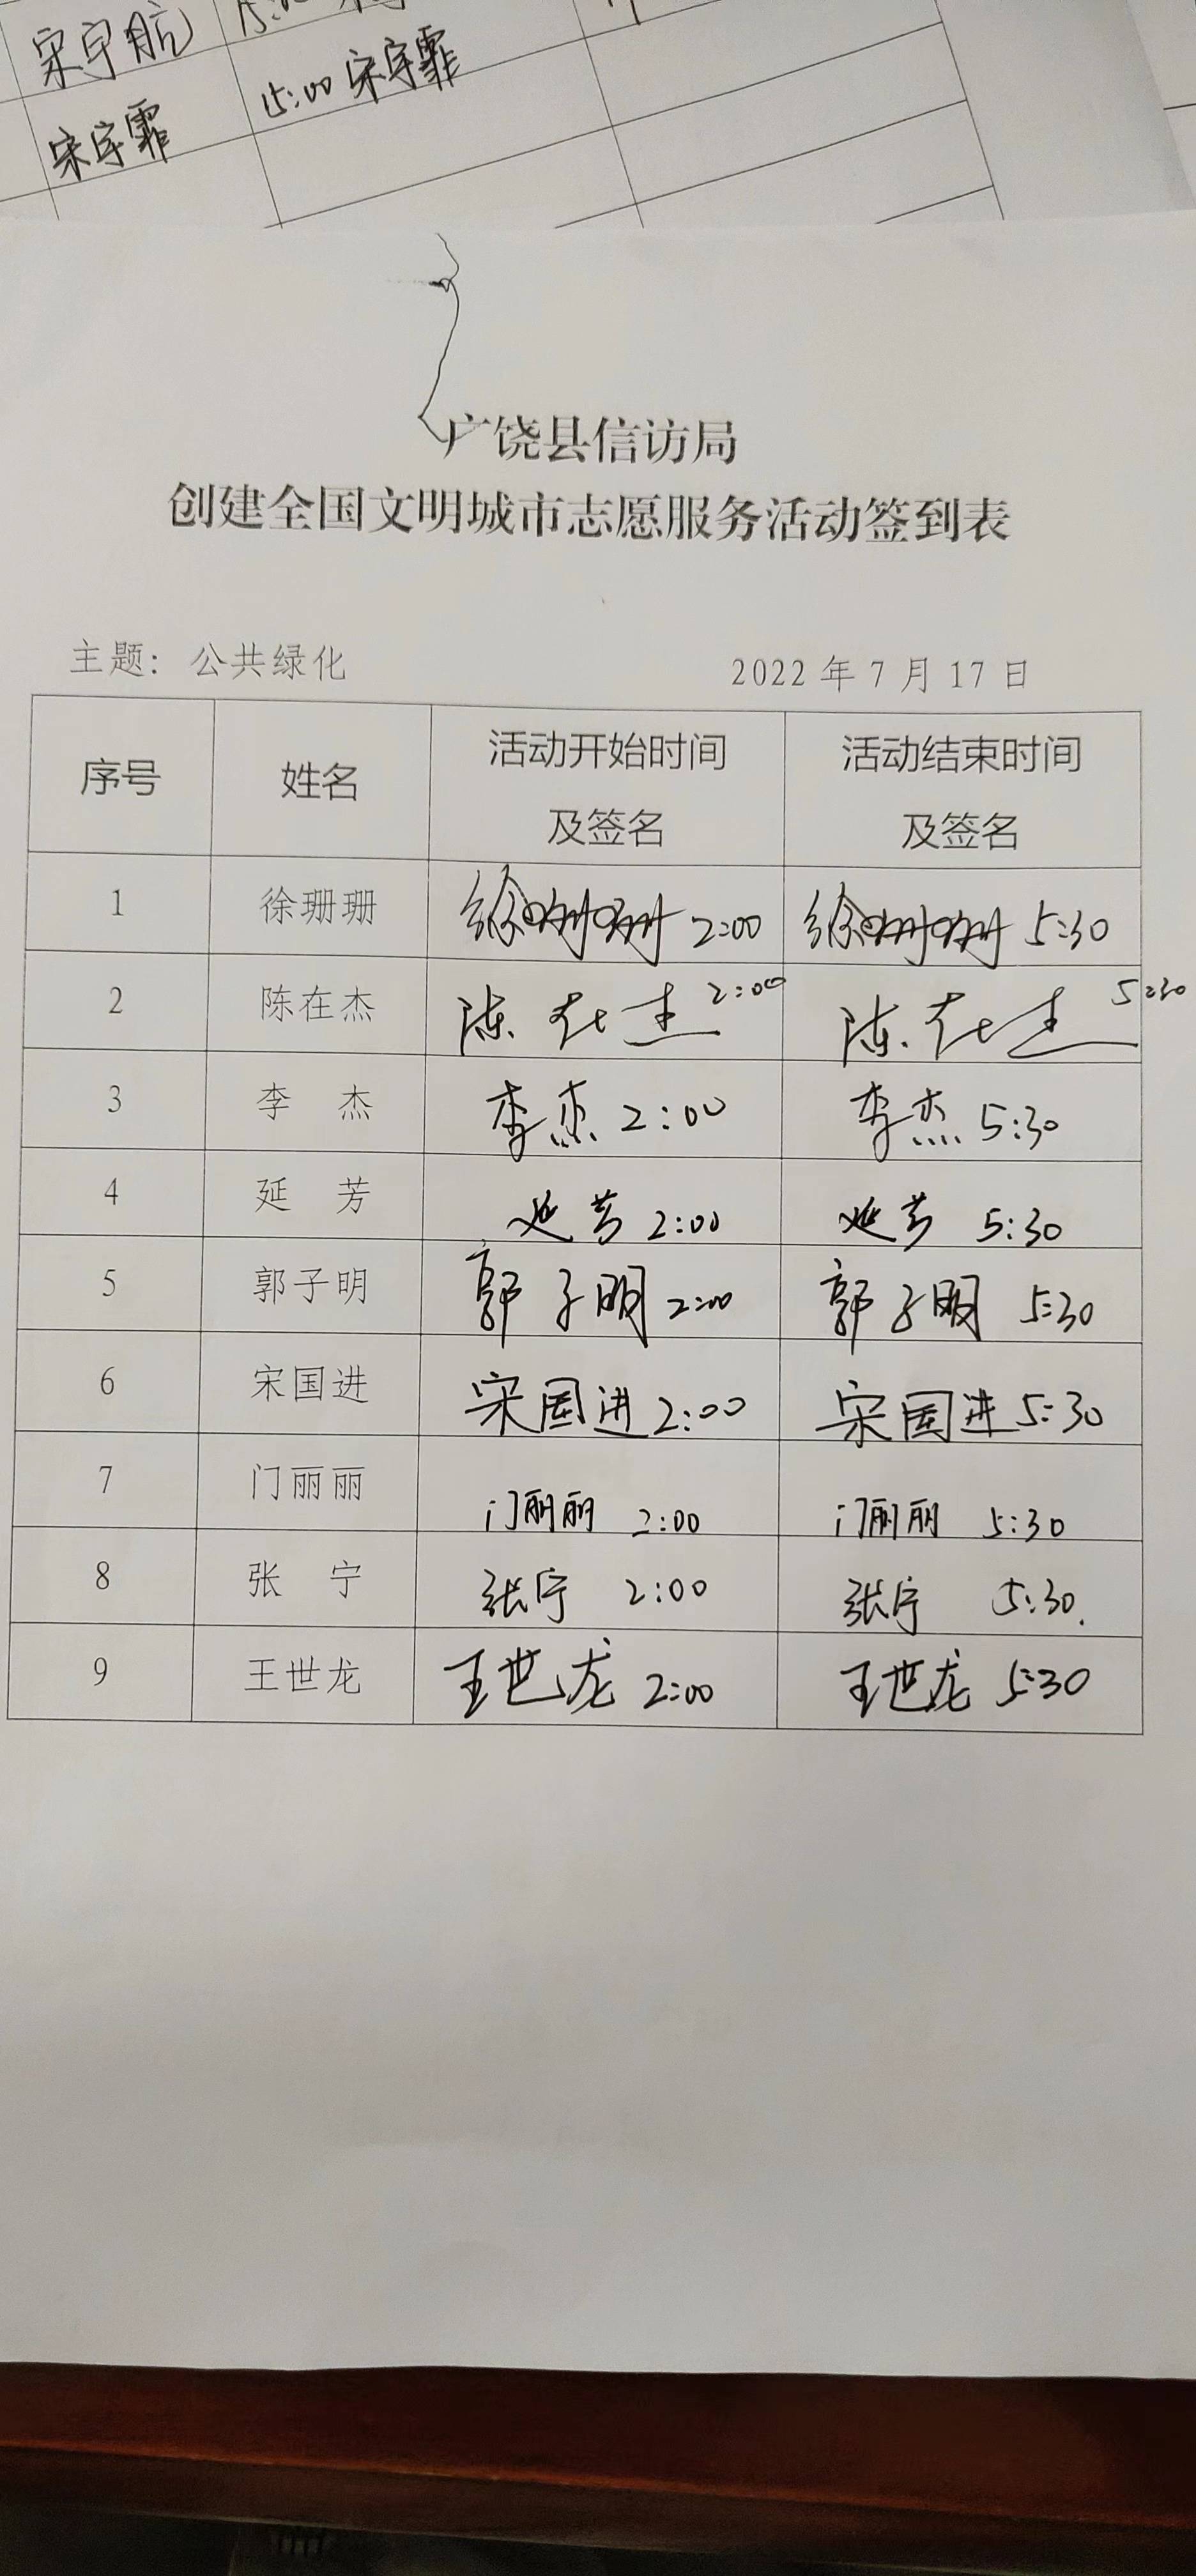 宋宇航 15:00
宋宇霏 15:00 宋宇霏
广饶县信访局
创建全国文明城市志愿服务活动签到表
主题：公共绿化 2022 年 7 月 17 日
序号 姓名 活动开始时间及签名 活动结束时间及签名
1 徐珊珊 徐珊珊 2:00 徐珊珊 5:30
2 陈在杰 陈在杰 2:00 陈在杰 5:30
3 李 杰 李杰 2:00 李杰 5:30
4 延 芳 延芳 2:00 延芳 5:30
5 郭子明 郭子明 2:00 郭子明 5:30
6 宋国进 宋国进 2:00 宋国进 5:30
7 门丽丽 门丽丽 2:00 门丽丽 5:30
8 张 宁 张宁 2:00 张宁 5:30.
9 王世龙 王世龙 2:00 王世龙 5:30